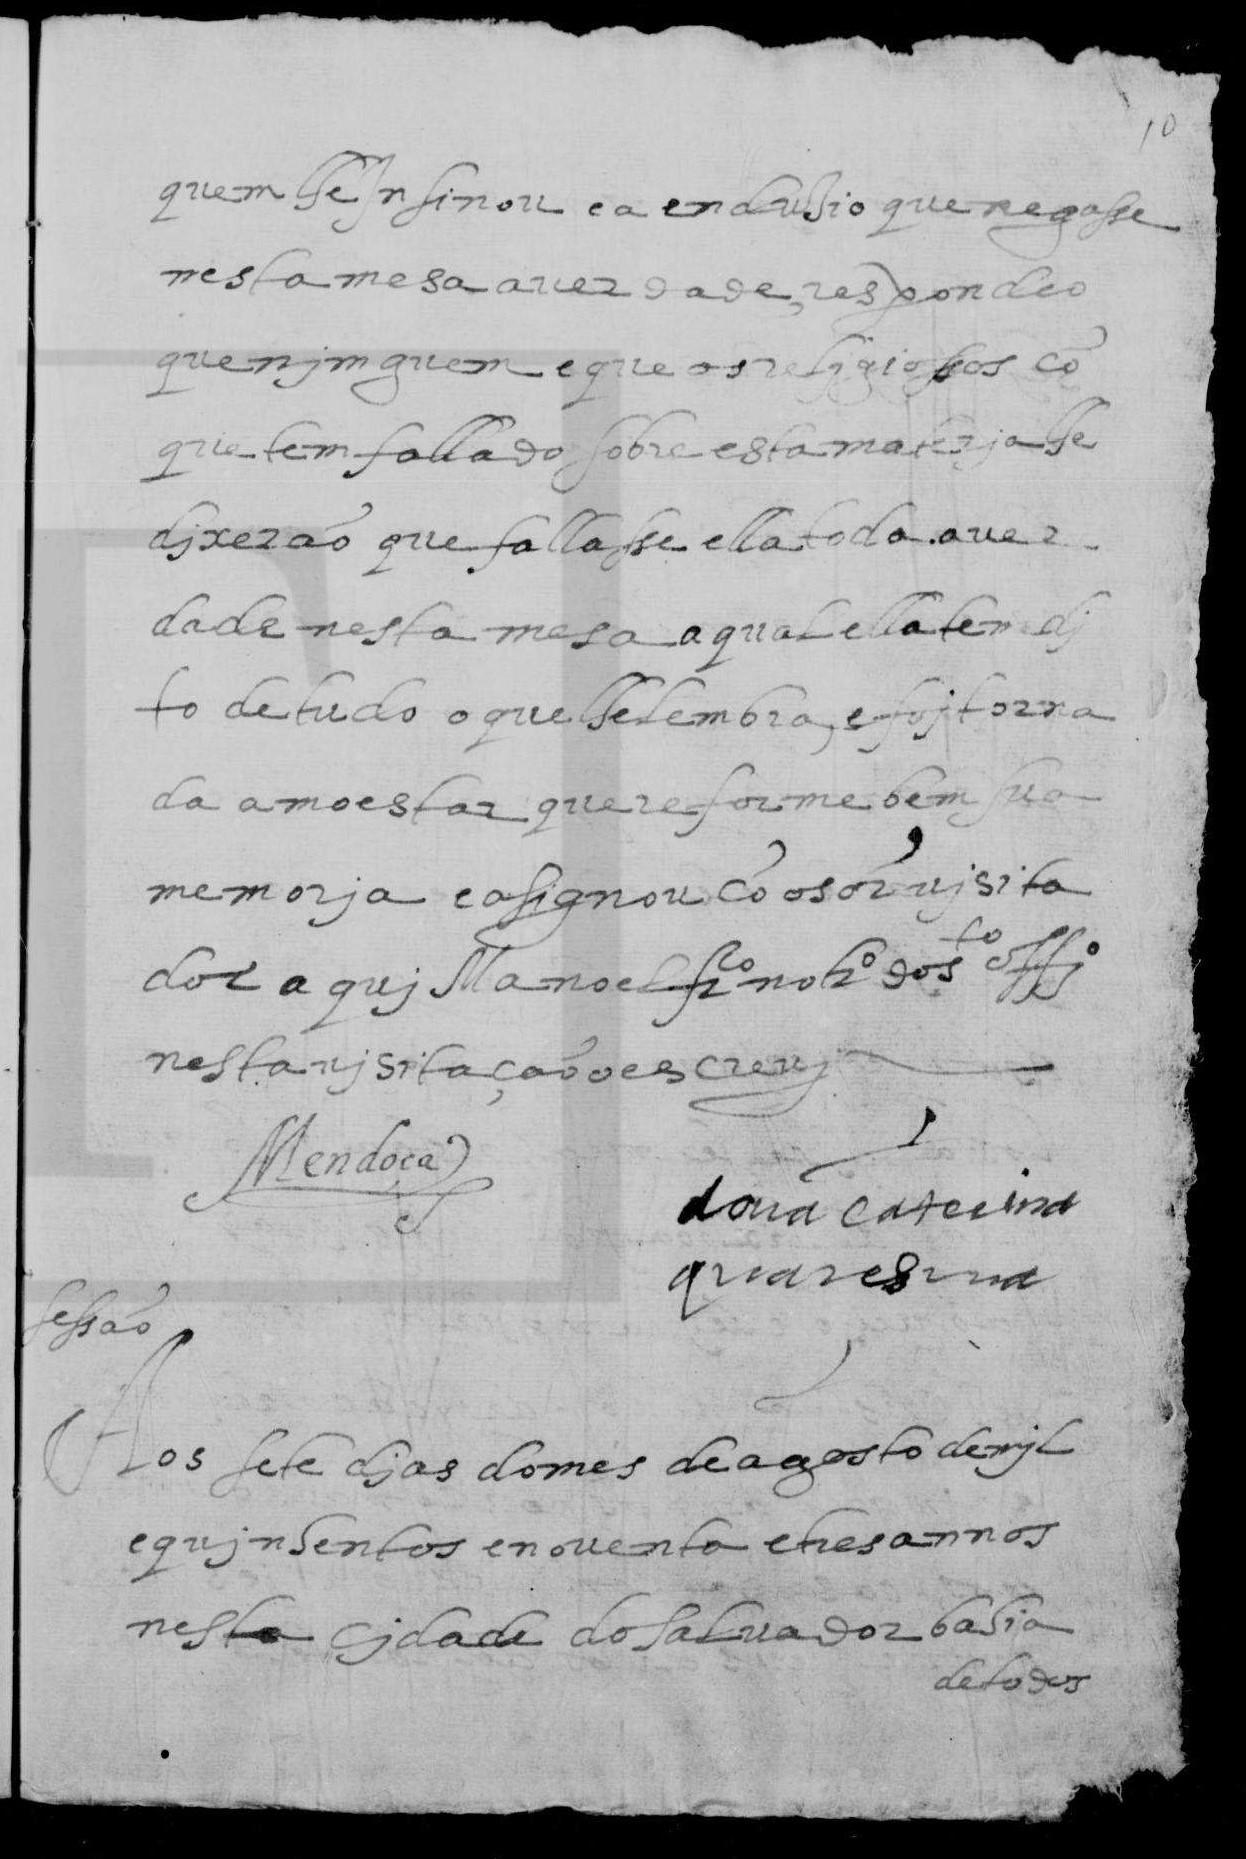 10
quem lhe Insinou e a endusio que negasse
nesta mesa a uerdade, respondeo
que njmguem e que os religiosos cõ
que tem fallado sobre esta materja lhe
djxerão que fallasse ella toda a uer
dade nesta mesa a qual ella tem dj
to de tudo o que lhe lembra, e foj torna
da amoestar que reforme bem sua
memorja e asignou cõ o sõr ujsita
dor aquj Manoel frco notro do sto offjo
nesta ujsitação o escreuj
Mendoça
dona Caterina
quaresma
sessão
Aos sete djas do mes de agosto de mjl
e qujnhentos e nouenta e tres annos
nesta Cjdade do saluador bahia
de todos